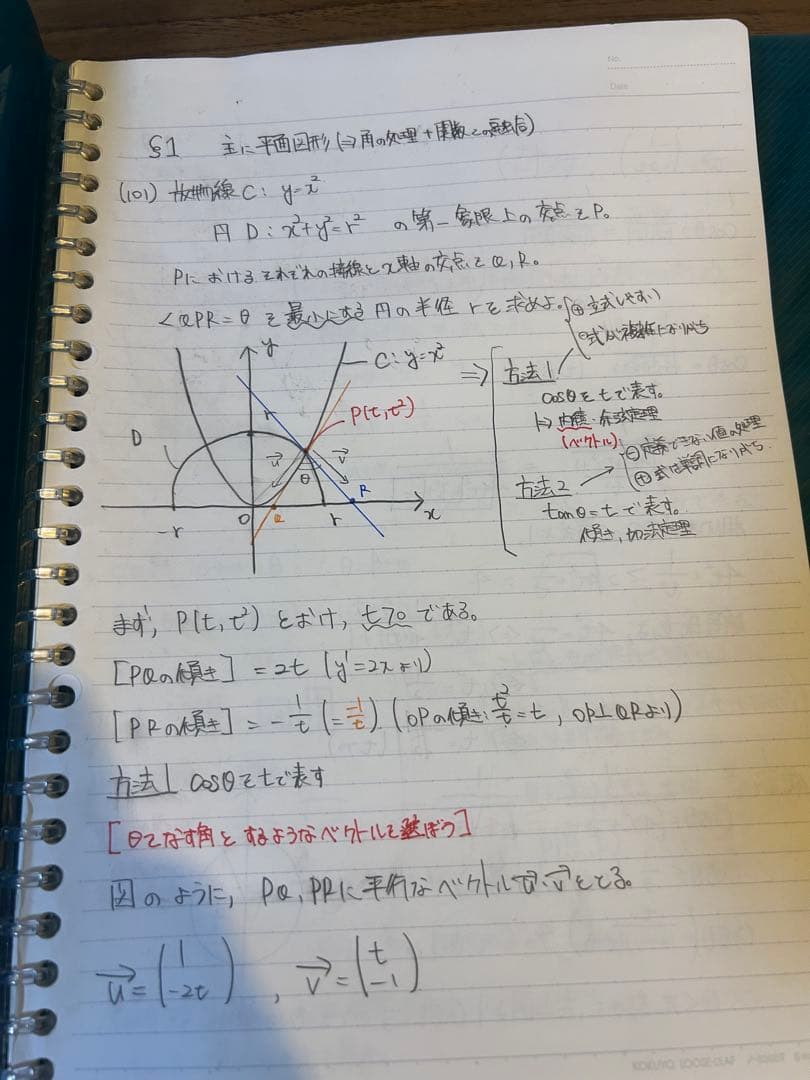 No.
Date
§1 主に平面図形 (⇒ 角の処理 + 関数との融合)
(101) 放物線 C: y=x²
円 D: x²+y²=r² の第一象限上の交点をP。
Pにおけるそれぞれの接線とx軸の交点をQ, R。
∠QPR=θ を最小にする円の半径 r を求めよ。
⊕ 立式しやすい
⊖ 式が複雑になりがち
y
C: y=x²
⇒
方法1
cosθをtで表す。
↦ 内積・余弦定理
(ベクトル)
P(t, t²)
r
D
u→
v→
θ
R
⊖ 定義できない値の処理
⊕ 式は単調になりがち
方法2
tanθ=tで表す。
傾き, 加法定理
-r
O
Q
r
x
まず, P(t, t²) とおけ, t>0 である。
[PQの傾き] = 2t (y'=2xより)
[PRの傾き] = -1/t (= -1/t) (OPの傾き: t²/t = t, OP⊥QRより)
方法1 cosθをtで表す
[θをなす角とするようなベクトルを選ぼう]
図のように, PQ, PRに平行なベクトルu→・v→をとる。
u→ = (1 -2t) , v→ = (t -1)
KOKUYO LOOSE-LEAF